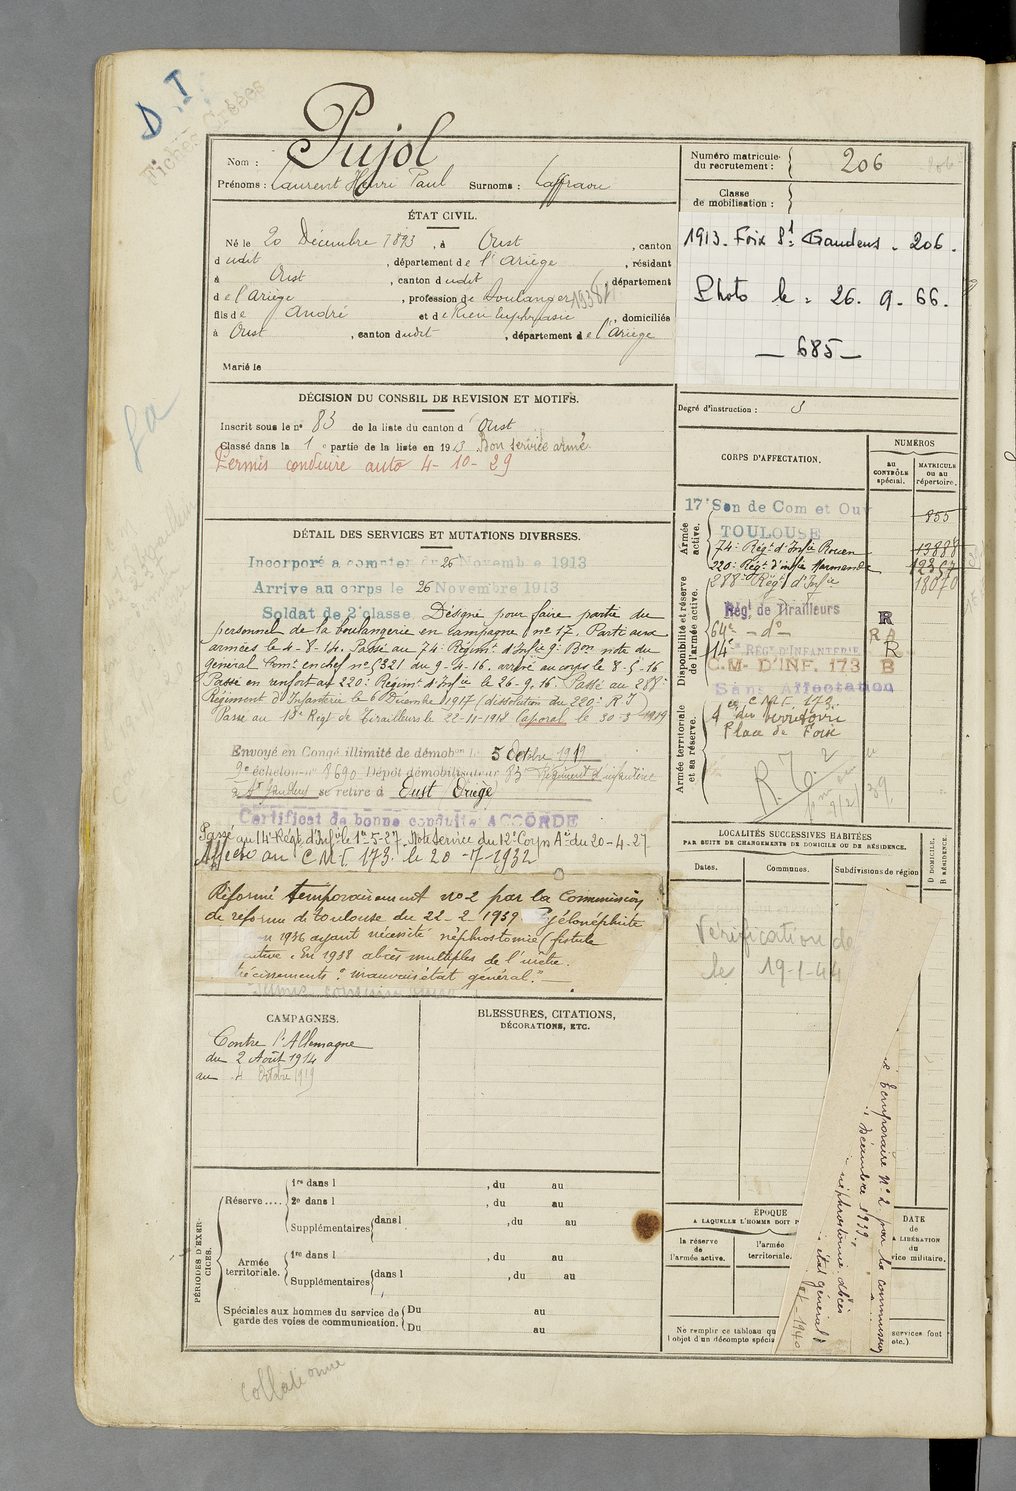 D.I.
Fiches
Pujol
Nom :
Prénoms : Laurent Henri Paul Surnoms : Laffraou
ÉTAT CIVIL.
Né le 20 Décembre 1893, à Oust, canton
dudit, département de l'Ariège, résidant
à Oust, canton dudit, département
de l'Ariège, profession de Boulanger
fils de André et de, domiciliés
à Oust, canton dudit, département de l'Ariège
Marié le
DÉCISION DU CONSEIL DE REVISION ET MOTIFS.
Inscrit sous le n° 83 de la liste du canton d'Oust
Classé dans la 1e partie de la liste en 1913 Bon service armé.
Permis conduire auto 4-10-29
DÉTAIL DES SERVICES ET MUTATIONS DIVERSES.
Incorporé à compter du 26 Novembre 1913
Arrivé au corps le 26 Novembre 1913
Soldat de 2e classe. Désigné pour faire partie du
personnel de la boulangerie en campagne n° 17. Parti aux
armées le 4-8-14. Passé au 74e Régimt d'Infie Bon note du
général Comt en chef n° 5321 du 9-4-16. arrivé au corps le 8-5-16
Passé en renfort au 220e Régimt d'Infie le 26-9-16. Passé au 288e
Régiment d'Infanterie le 6 Décembre 1917 (dissolution du 220e R I)
Passé au 18e Régt de Tirailleurs le 22-11-1918 Caporal le 30-3-1919
Envoyé en Congé illimité de démobon le 5 Octobre 1919
9e échelon n° 8690 Dépôt démobilisateur 83 Régiment d'infanterie
à St Gaudens se retire à Oust Ariège
Certificat de bonne conduite ACCORDÉ
Passé au 14e Régt d'Infie le 1er 5-27, Note Service du 12e Corps Aée du 20-4-27
Affecté au C.M.I. 173. le 20-7-1932
Réformé temporairement no 2 par la Commission
de réforme de Toulouse du 22-2 1939. Pyélonéphrite
n 1936 ayant nécessité néphrostomie (fistule
En 1938 abcès multiples de l'urètre.
"mauvais état général."
CAMPAGNES.
Contre l'Allemagne
du 2 Août 1914
au 4 Octobre 1919
BLESSURES, CITATIONS,
DÉCORATIONS, ETC.
PÉRIODES D'EXERCICES.
Réserve ....
1re dans l , du au
2e dans l , du au
Supplémentaires dans l , du au
Armée territoriale.
1re dans l , du au
Supplémentaires dans l , du au
Spéciales aux hommes du service de garde des voies de communication.
Du au
Du au
collationné
Numéro matricule du recrutement : 206
Classe de mobilisation :
1913. Foix St Gaudens . 206.
Photo le . 26. 9. 66.
— 685 —
Degré d'instruction : 3
CORPS D'AFFECTATION.
NUMÉROS
au CONTRÔLE spécial.
MATRICULE ou au répertoire.
Armée active.
17e Son de Com et Ouv 855
TOULOUSE
74e Régt d'Infie Rouen 13888
220e Régt d'infie Marmande
288e Régt d'Infie 18070
Disponibilité et réserve de l'armée active.
Régt de Tirailleurs R
64e — do — R A
14e RÉGt D'INFANTERIE R
C.M- D'INF. 173 B
Sans Affectation
Armée territoriale et sa réserve.
C.M.I. 173.
Place de Foix
R.T. 2
LOCALITÉS SUCCESSIVES HABITÉES
PAR SUITE DE CHANGEMENTS DE DOMICILE OU DE RÉSIDENCE.
Dates.
Communes.
Subdivisions de région
D DOMICILE.
R RÉSIDENCE.
Vérification de
le 19-1-44
e temporaire N° 2 par la commission
Décembre 1939.
néphrostomie abcès
état général
1940
ÉPOQUE
A LAQUELLE L'HOMME DOIT P
la réserve de l'armée active.
l'armée territoriale.
DATE
de
LIBÉRATION
du
vice militaire.
Ne remplir ce tableau qu
services font
l'objet d'un décompte spécia
etc.).